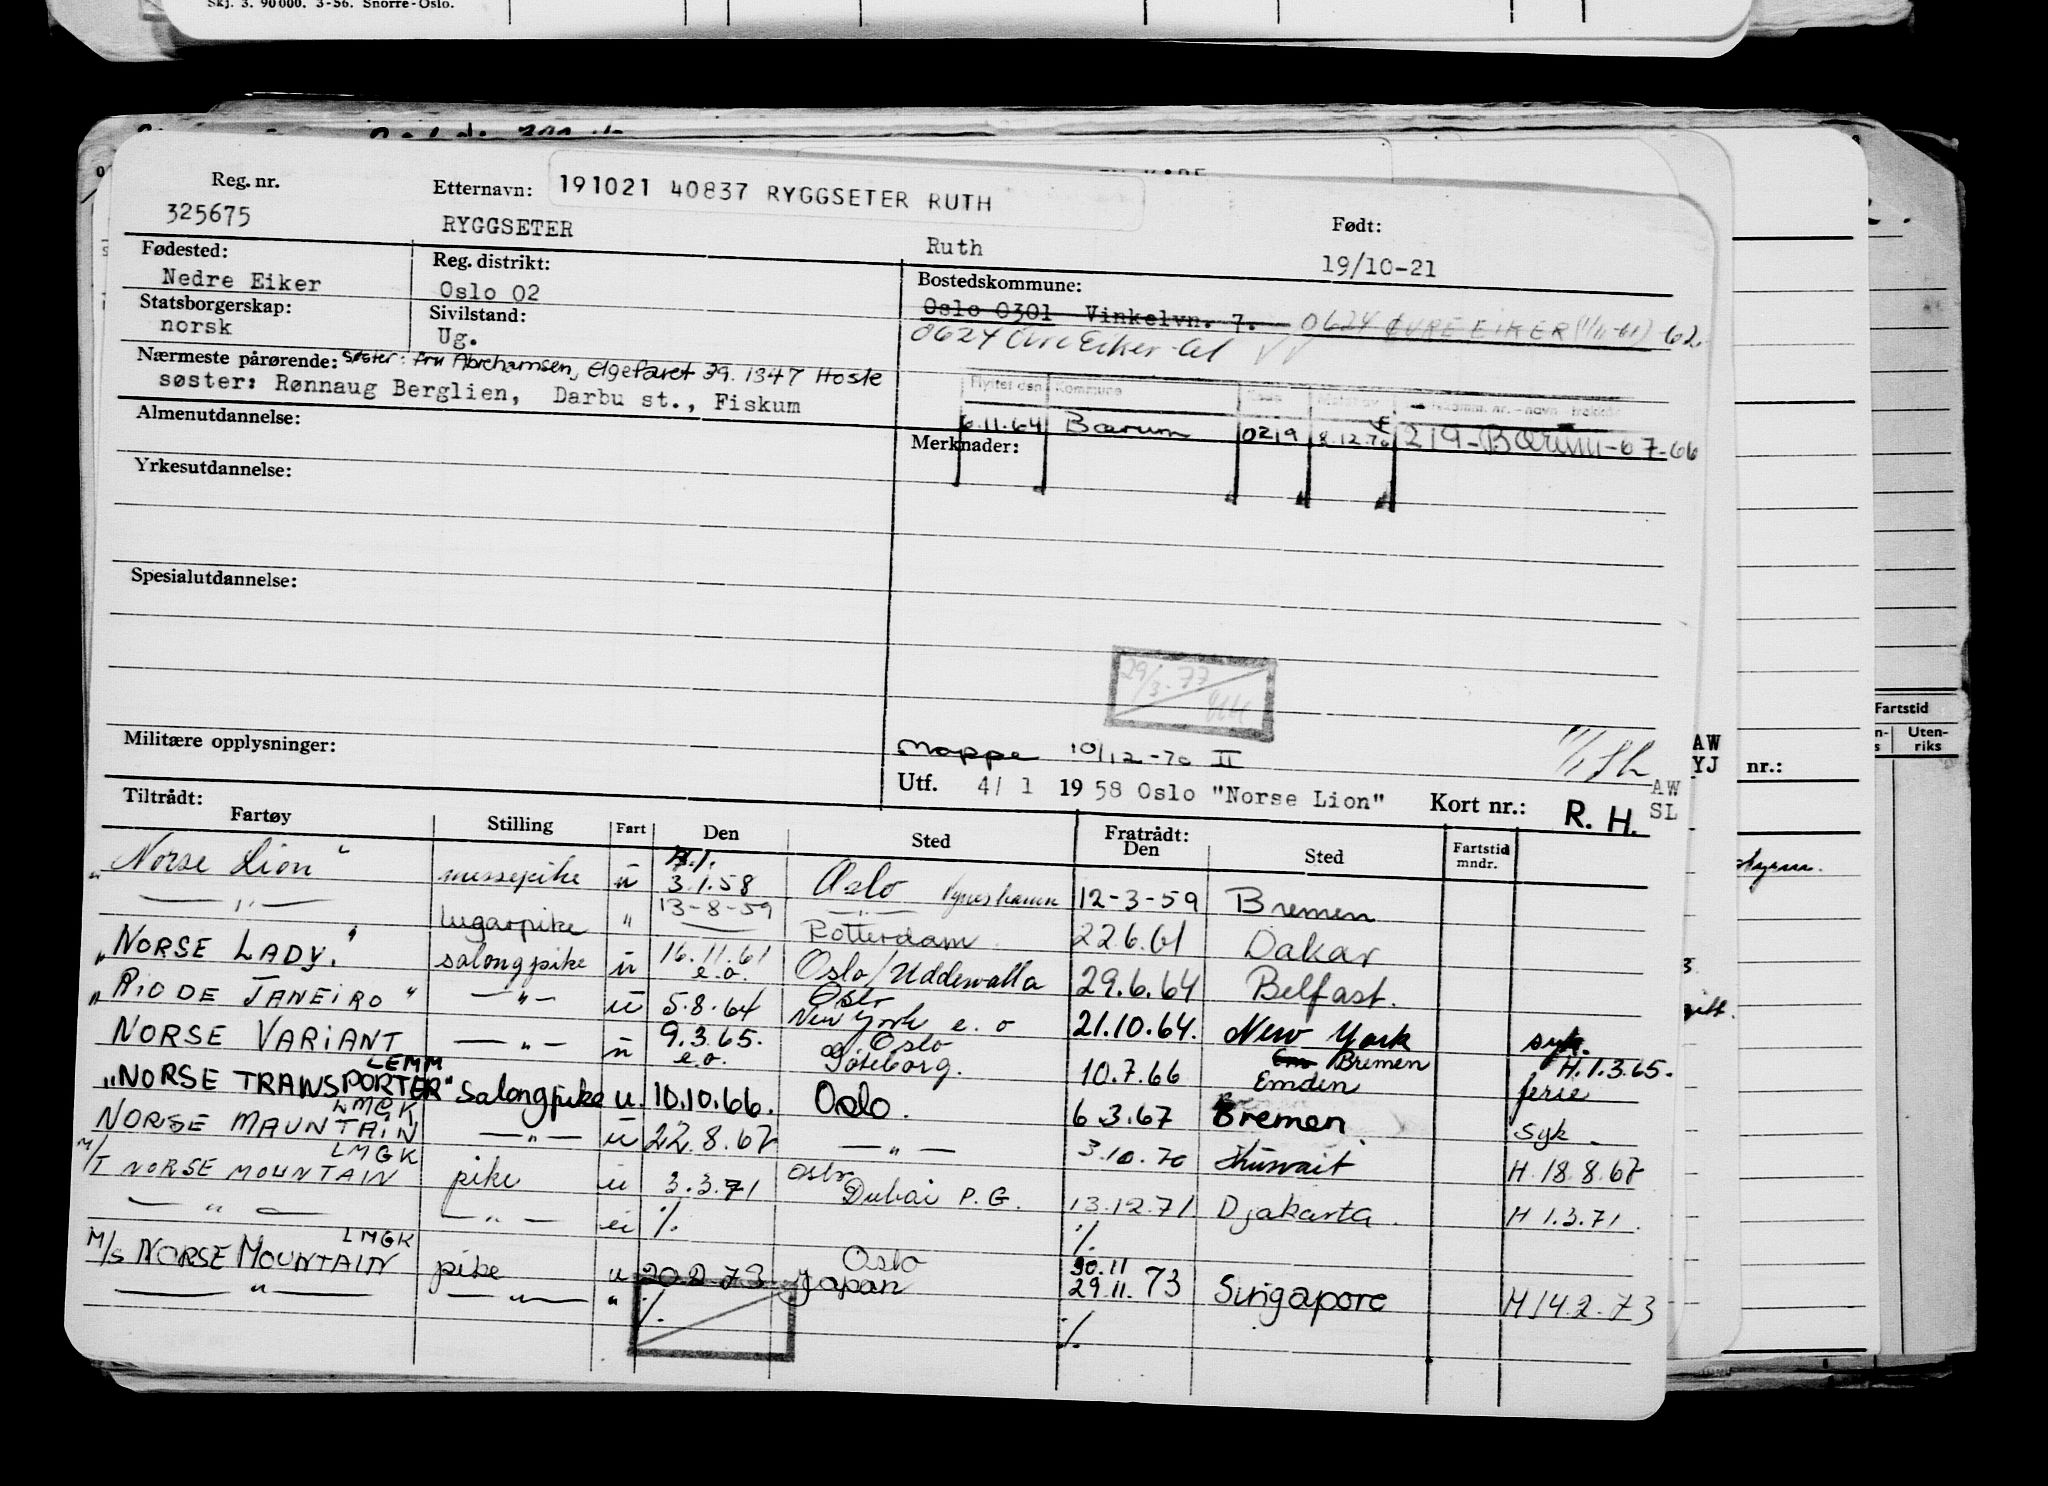 Skj. 3. 90000. 3-56. Snorre-Oslo.
Reg. nr. Etternavn: 191021 40837 RYGGSETER RUTH Født:
325675 RYGGSETER Ruth 19/10-21
Fødested: Reg. distrikt: Bostedskommune:
Nedre Eiker Oslo 02 Oslo 0301 Vinkelvn. 7. 0624 ØVRE EIKER (1/11-61) -62.
Statsborgerskap: Sivilstand: 0624 Øvre Eiker
norsk Ug.
Nærmeste pårørende: søster: fru Abrahamsen, Elgefaret 39. 1347 Hosle
søster: Rønnaug Berglien, Darbu st., Fiskum
Flyttet den Kommune
6.11.64 Bærum 0219 8.12.70 219-Bærum-67-66
Almenutdannelse: Merknader:
Yrkesutdannelse:
Spesialutdannelse:
29/3.77
Militære opplysninger: Mappe 10/12-70 II
Utf. 4/ 1 1958 Oslo "Norse Lion" Kort nr.: R. H.
AW
SL
AW
YJ
nr.:
Fartstid
Uten-
riks
Tiltrådt: Fratrådt:
Fartøy Stilling Fart Den Sted Den Sted Fartstid mndr.
"Norse Lion" messepike u 3.1.58 Oslo 12-3-59 Bremen
— " — lugarpike " 13-8-59 Rotterdam 22.6.61 Dakar
"NORSE LADY." salongpike u 16.11.61 e.o. Oslo/Uddevalla 29.6.64 Belfast.
"RIO DE JANEIRO" — " — u 5.8.64 Oslo New York e. o 21.10.64. New York syk.
NORSE VARIANT — " — u 9.3.65. e.o. Oslo Gøteborg. 10.7.66 Bremen Emden H.1.3.65. ferie
LEMM
"NORSE TRANSPORTER" Salongpike u. 10.10.66. Oslo. 6.3.67 Bremen syk.
LMGK
NORSE MAUNTAIN — " — u 22.8.67 — " — 3.10.70 Kuwait H.18.8.67
LMGK
M/T NORSE MOUNTAIN pike u 3.3.71 Oslo Dubai P.G. 13.12.71. Djakarta. H 1.3.71.
— " — — " — u ./. ./.
LMGK
M/S NORSE MOUNTAIN pike u 20.2.73 Oslo Japan 30.11 29.11.73 Singapore H 14.2.73
— " — — " — " ./. ./.